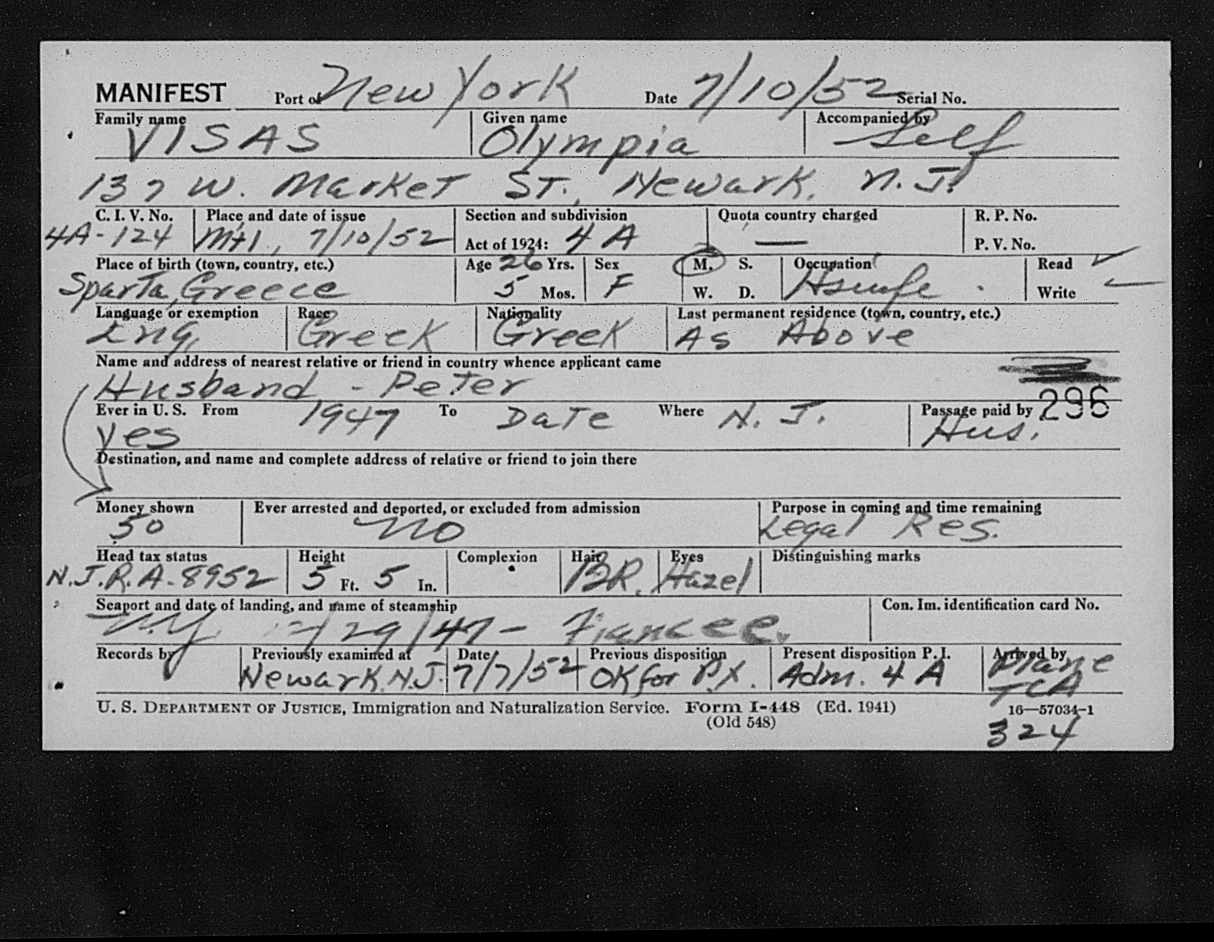 MANIFEST Port of New York Date 7/10/52 Serial No.
Family name Given name Accompanied by
VISAS Olympia Self
137 W. Market St., Newark, N.J.
C. I. V. No. Place and date of issue Section and subdivision Quota country charged R. P. No.
4A-124 Mtl., 7/10/52 Act of 1924: 4 A — P. V. No.
Place of birth (town, country, etc.) Age 26 Yrs. Sex M. S. Occupation Read ✓
Sparta, Greece 5 Mos. F W. D. Hswfe. Write
Language or exemption Race Nationality Last permanent residence (town, country, etc.)
Eng. Greek Greek As Above
Name and address of nearest relative or friend in country whence applicant came
Husband - Peter
296
Ever in U. S. From 1947 To Date Where N. J. Passage paid by
Yes Hus.
Destination, and name and complete address of relative or friend to join there
Money shown Ever arrested and deported, or excluded from admission Purpose in coming and time remaining
50 No Legal Res.
Head tax status Height Complexion Hair Eyes Distinguishing marks
N.J.R.A-8952 5 Ft. 5 In. BR. Hazel
Seaport and date of landing, and name of steamship Con. Im. identification card No.
N.Y. /29/47 - Fiancee.
Records by Previously examined at Date Previous disposition Present disposition P. I. Arrived by
Newark N.J. 7/7/52 OK for P.X. Adm. 4 A Plane
TCA
U. S. DEPARTMENT OF JUSTICE, Immigration and Naturalization Service. Form I-448 (Ed. 1941) 16—57034-1
(Old 548)
324